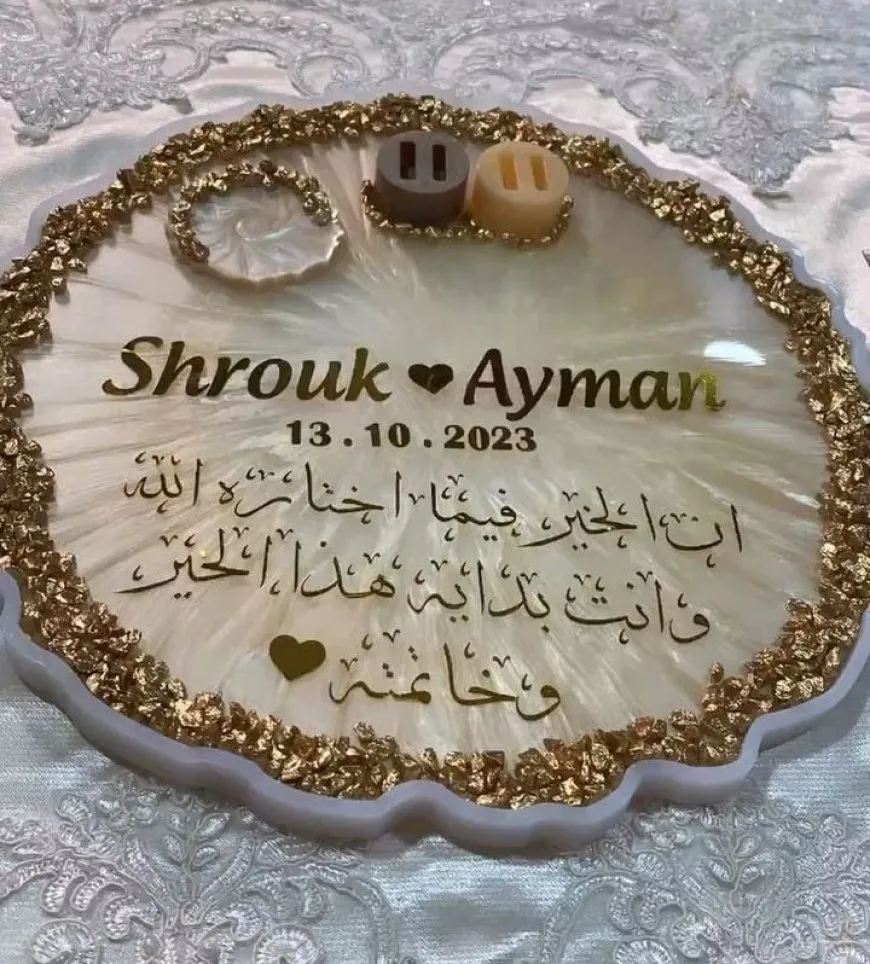 Shrouk ♥ Ayman
13.10.2023
ان الخير فيما اختاره الله
وانت بدايه هذا الخير
وخاتمته ♥